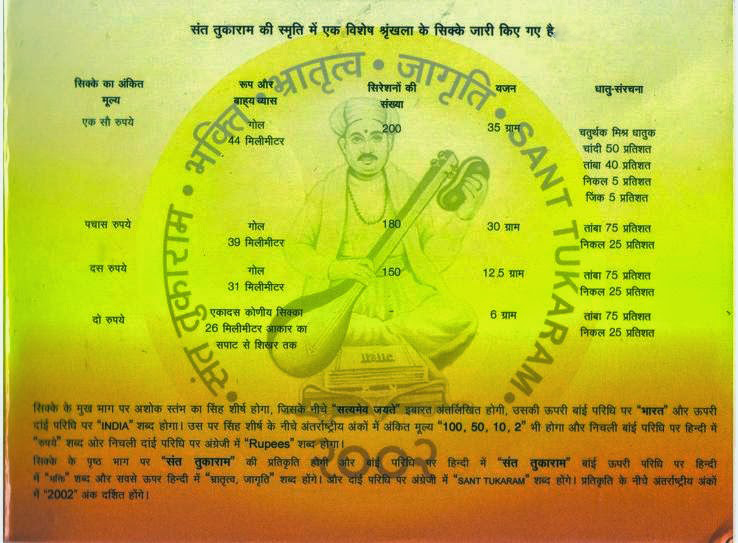 संत तुकाराम की स्मृति में एक विशेष श्रृंखला के सिक्के जारी किए गए है
संत तुकाराम • भक्ति • भ्रातृत्व • जागृति • SANT TUKARAM •
सिक्के का अंकित मूल्य रूप और बाह्य व्यास सिरेशनों की संख्या यजन धातु-संरचना
एक सौ रुपये गोल 44 मिलीमीटर 200 35 ग्राम चतुर्थक मिश्र धातुक
चांदी 50 प्रतिशत
तांबा 40 प्रतिशत
निकल 5 प्रतिशत
जिंक 5 प्रतिशत
पचास रुपये गोल 39 मिलीमीटर 180 30 ग्राम तांबा 75 प्रतिशत
निकल 25 प्रतिशत
दस रुपये गोल 31 मिलीमीटर 150 12.5 ग्राम तांबा 75 प्रतिशत
निकल 25 प्रतिशत
दो रुपये एकादस कोणीय सिक्का - 6 ग्राम तांबा 75 प्रतिशत
26 मिलीमीटर आकार का निकल 25 प्रतिशत
सपाट से शिखर तक
सिक्के के मुख भाग पर अशोक स्तंभ का सिंह शीर्ष होगा, जिसके नीचे "सत्यमेव जयते" इबारत अंतर्लिखित होगी, उसकी ऊपरी बांई परिधि पर "भारत" और ऊपरी
दांई परिधि पर "INDIA" शब्द होगा। उस पर सिंह शीर्ष के नीचे अंतर्राष्ट्रीय अंकों में अंकित मूल्य "100, 50, 10, 2" भी होगा और निचली बांई परिधि पर हिन्दी में
"रुपये" शब्द ओर निचली दांई परिधि पर अंग्रेजी में "Rupees" शब्द होगा।
सिक्के के पृष्ठ भाग पर "संत तुकाराम" की प्रतिकृति होगी और बांई परिधि पर हिन्दी में "संत तुकाराम" बांई ऊपरी परिधि पर हिन्दी
में "भक्ति" शब्द और सबसे ऊपर हिन्दी में "भ्रातृत्व, जागृति" शब्द होंगे। और दांई परिधि पर अंग्रेजी में "SANT TUKARAM" शब्द होंगे। प्रतिकृति के नीचे अंतर्राष्ट्रीय अंकों
में "2002" अंक दर्शित होंगे।
२००२